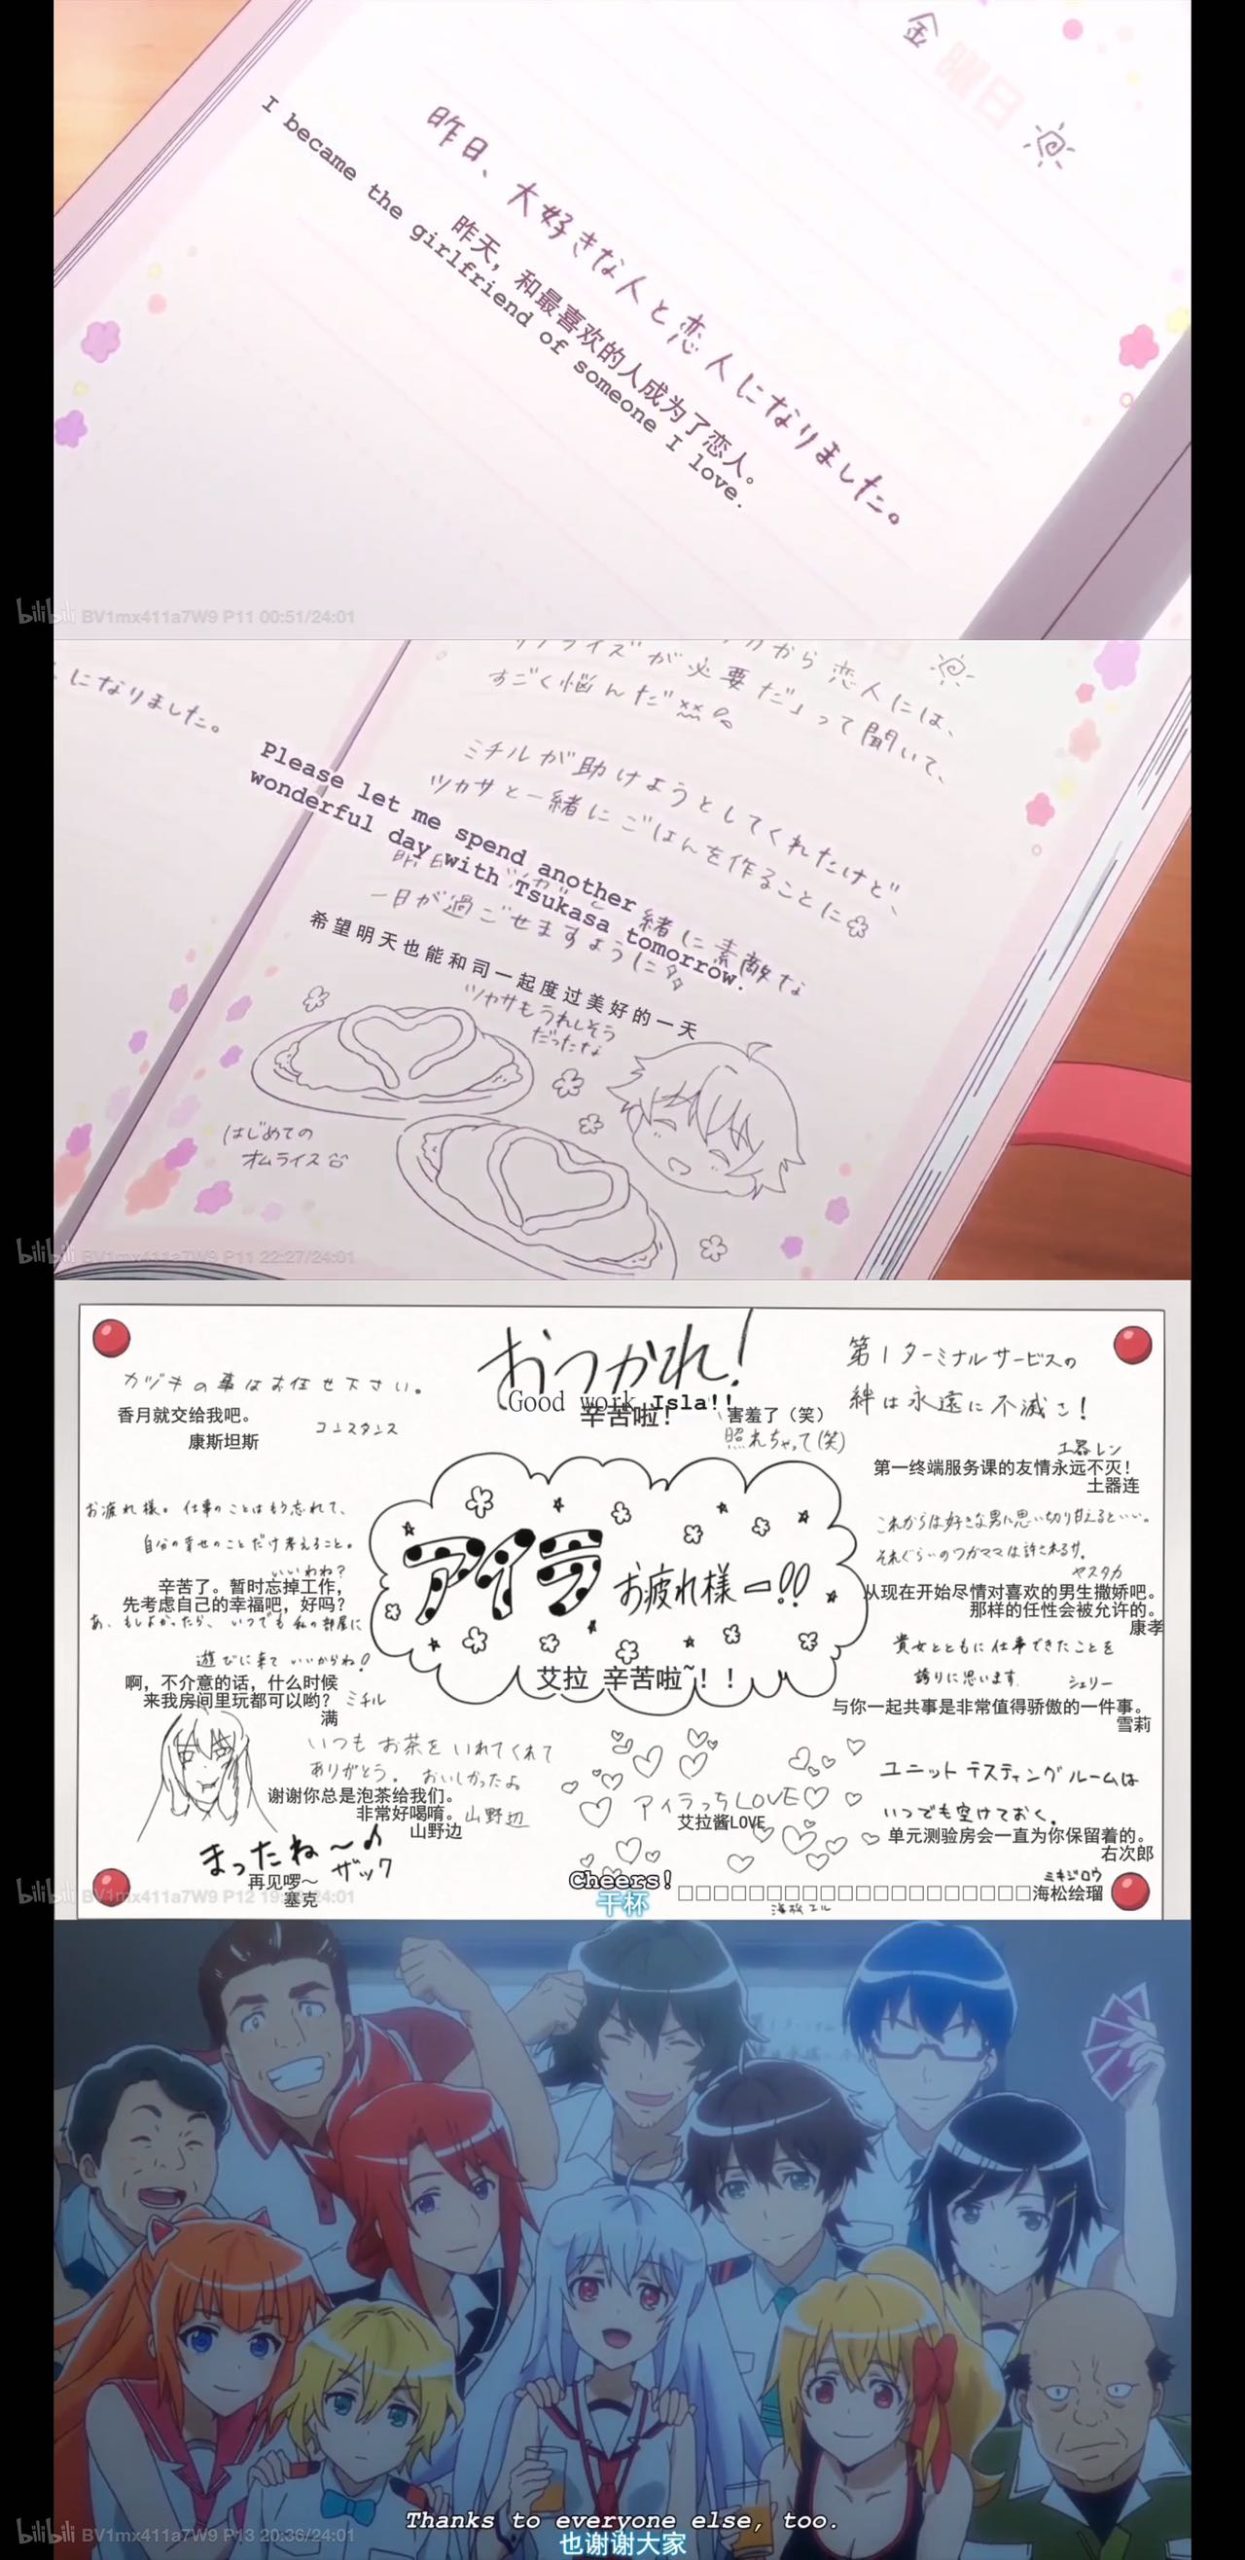 金曜日
昨日、大好きな人と恋人になりました。
昨天，和最喜欢的人成为了恋人。
I became the girlfriend of someone I love.
bilibili BV1mx411a7W9 P11 00:51/24:01
になりました。
から恋人には、
サプライズが必要だ」って聞いて、
すごく悩んだ
ミチルが助けようとしてくれたけど、
ツカサと一緒にごはんを作ることに
Please let me spend another
wonderful day with Tsukasa tomorrow.
緒に素敵な
一日が過ごせますように
希望明天也能和司一起度过美好的一天
ツカサもうれしそう
だったな
はじめての
オムライス
bilibili BV1mx411a7W9 P11 22:27/24:01
おつかれ!
Good work Isla!!
辛苦啦！
害羞了（笑）
照れちゃって(笑)
カヅキの事はお任せ下さい。
香月就交给我吧。
コンスタンス
康斯坦斯
第1ターミナルサービスの
絆は永遠に不滅さ!
土器レン
第一终端服务课的友情永远不灭！
土器连
お疲れ様。仕事のことはもう忘れて、
自分の幸せのことだけ考えること。
いいわね?
辛苦了。暂时忘掉工作，
先考虑自己的幸福吧，好吗？
あ、もしよかったら、いつでも私の部屋に
遊びに来ていいからね!
啊，不介意的话，什么时候
来我房间里玩都可以哟？
ミチル
满
アイラ お疲れ様ー!!
艾拉 辛苦啦~！！
これからは好きな男に思い切り甘えるといい。
それぐらいのワガママは許されるサ。
ヤスタカ
从现在开始尽情对喜欢的男生撒娇吧。
那样的任性会被允许的。
康孝
貴女とともに仕事できたことを
誇りに思います。
シェリー
与你一起共事是非常值得骄傲的一件事。
雪莉
いつもお茶をいれてくれて
ありがとう。おいしかったよ
谢谢你总是泡茶给我们。
非常好喝唷。
山野辺
山野边
アイラっちLOVE
艾拉酱LOVE
ユニットテスティングルームは
いつでも空けておく。
单元测验房会一直为你保留着的。
右次郎
ミキジロウ
まったね～♪
ザック
再见啰～
塞克
Cheers!
干杯
海松绘瑠
海松エル
bilibili BV1mx411a7W9 P12 24:01
Thanks to everyone else, too.
也谢谢大家
bilibili BV1mx411a7W9 P13 20:36/24:01